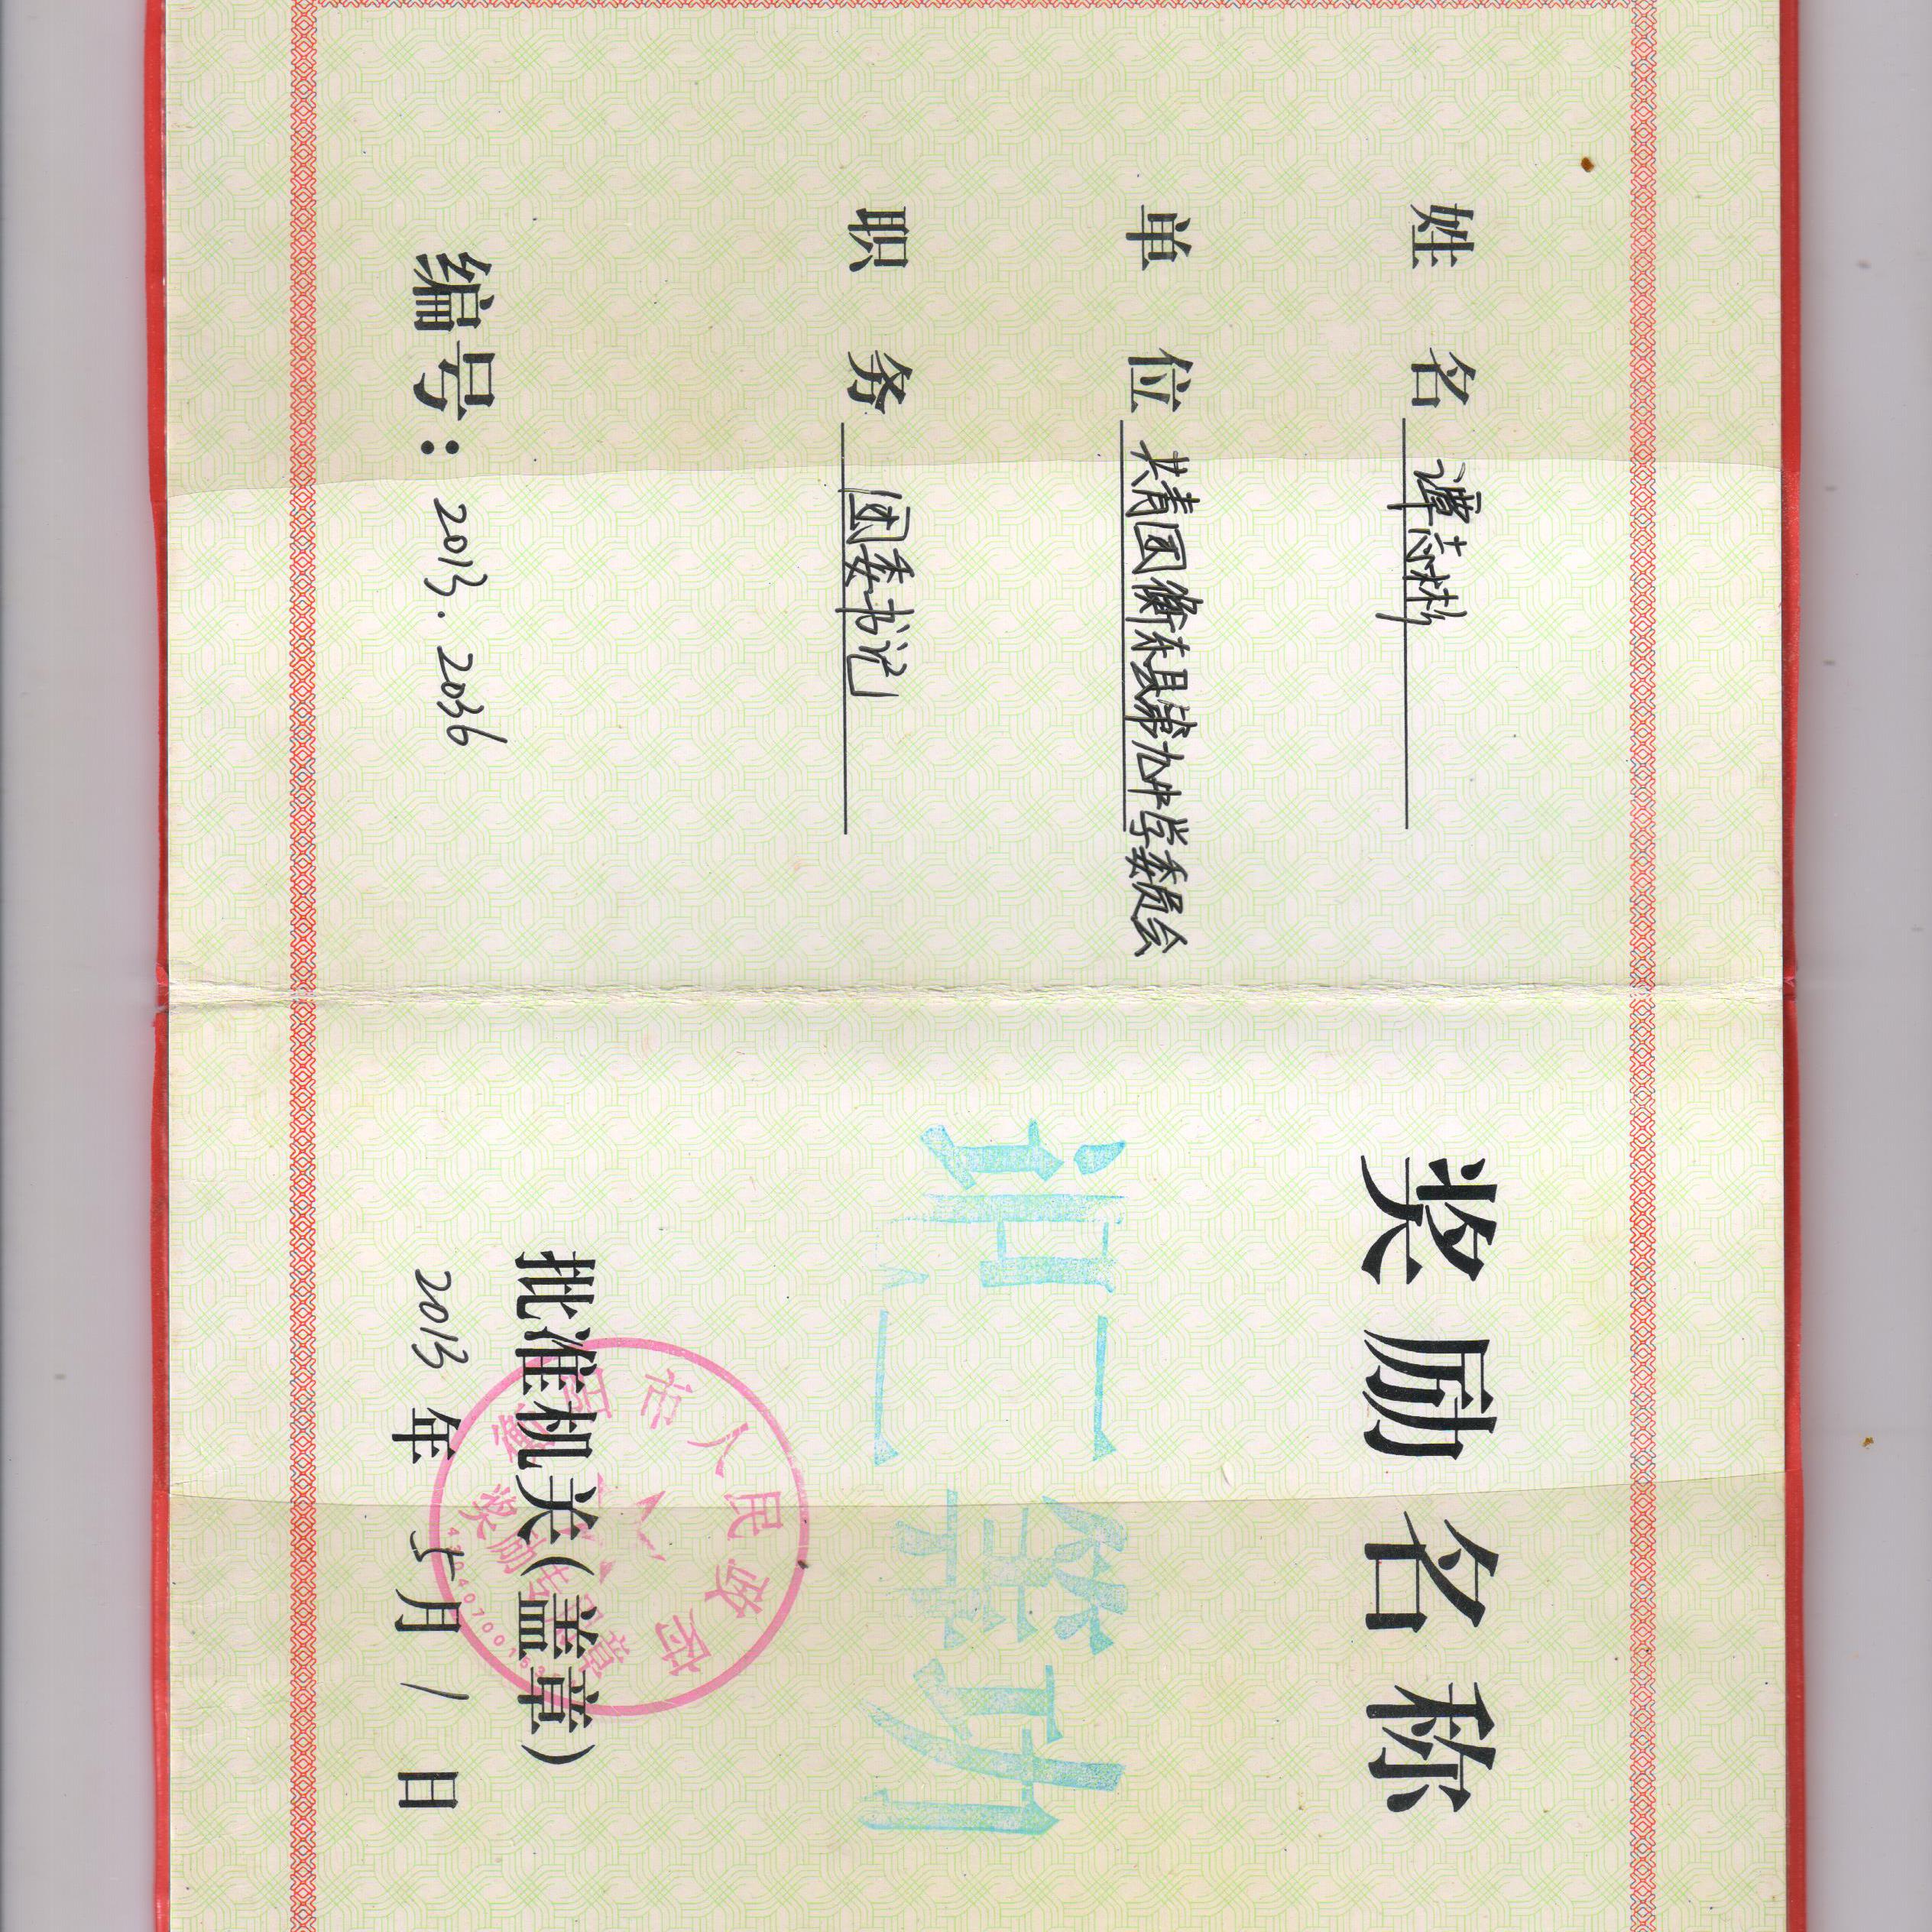 姓名 谭志彬
单位 共青团衡东县第九中学委员会
职务 团委书记
编号：2013.2036
奖励名称
记二等功
批准机关(盖章)
2013年5月1日
衡阳市人民政府
奖励专用章